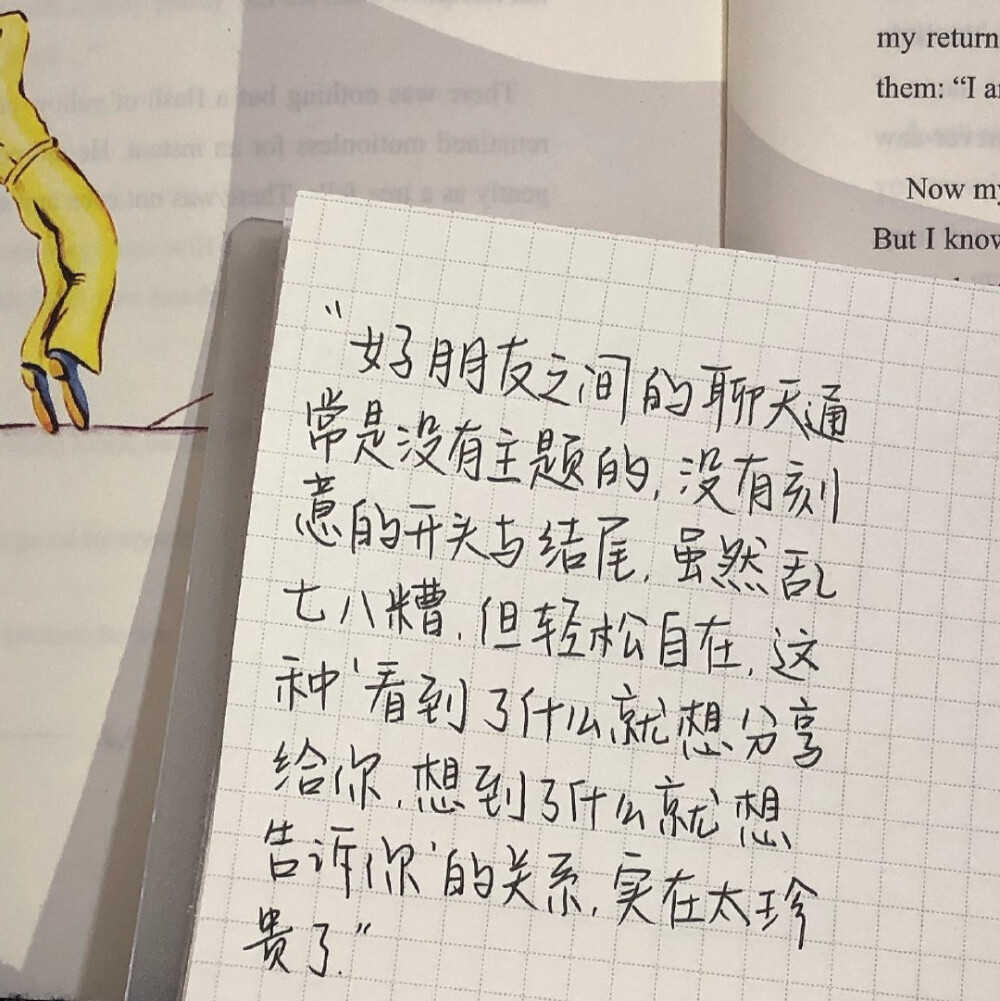 my return
them: “I a
Now my
But I know
There was nothing but a flash of yellow
remained motionless for an instant. He
gently as a tree falls. There was not
“好朋友之间的聊天通
常是没有主题的,没有刻
意的开头与结尾,虽然乱
七八糟,但轻松自在,这
种‘看到了什么就想分享
给你,想到了什么就想
告诉你’的关系,实在太珍
贵了.”